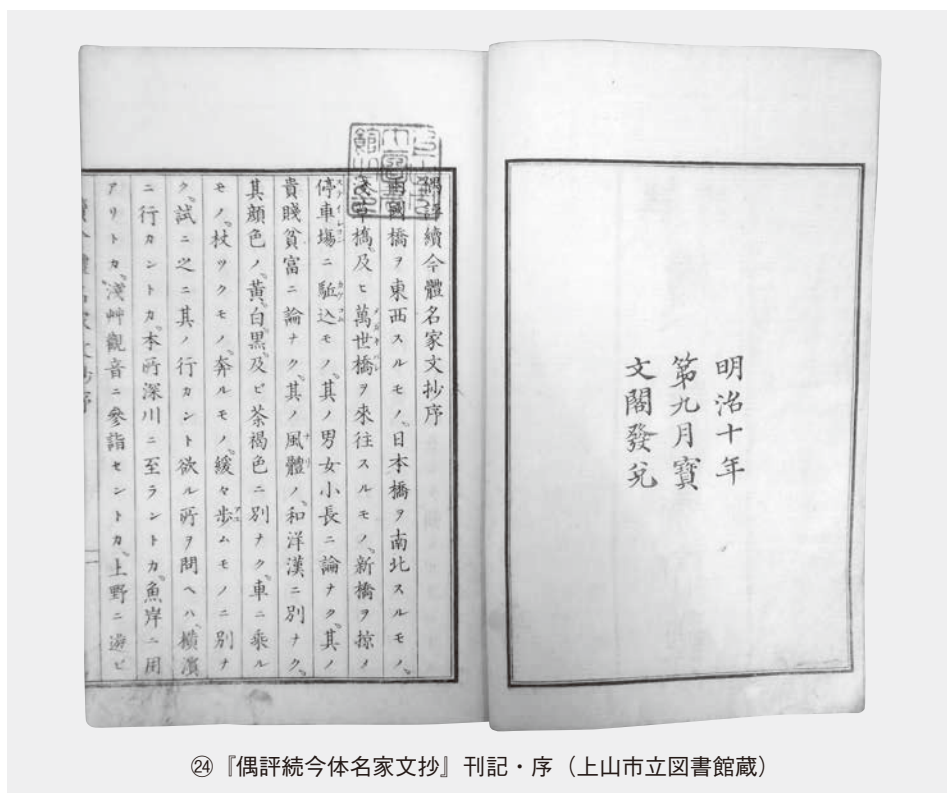 明治十年
第九月寳
文閣發兌
偶評續今體名家文抄序
兩國橋ヲ東西スルモノ。日本橋ヲ南北スルモノ。
淺草橋。及ヒ萬世橋ヲ來往スルモノ。新橋ヲ掠メ
停車場ニ駈込モノ。其ノ男女小長ニ論ナク。其ノ
貴賤貧富ニ論ナク。其ノ風體ノ。和洋漢ニ別ナク。
其顔色ノ。黄。白。黒。及ビ茶褐色ニ別ナク。車ニ乘ル
モノ。杖ツクモノ。奔ルモノ。緩々歩ムモノニ別ナ
ク。試ニ之ニ其ノ行カント欲ル所ヲ問ヘハ。横濱
ニ行カントカ。本所深川ニ至ラントカ。魚岸ニ用
アリトカ。淺艸觀音ニ參詣セントカ。上野ニ遊ビ
㉔『偶評続今体名家文抄』刊記・序（上山市立図書館蔵）